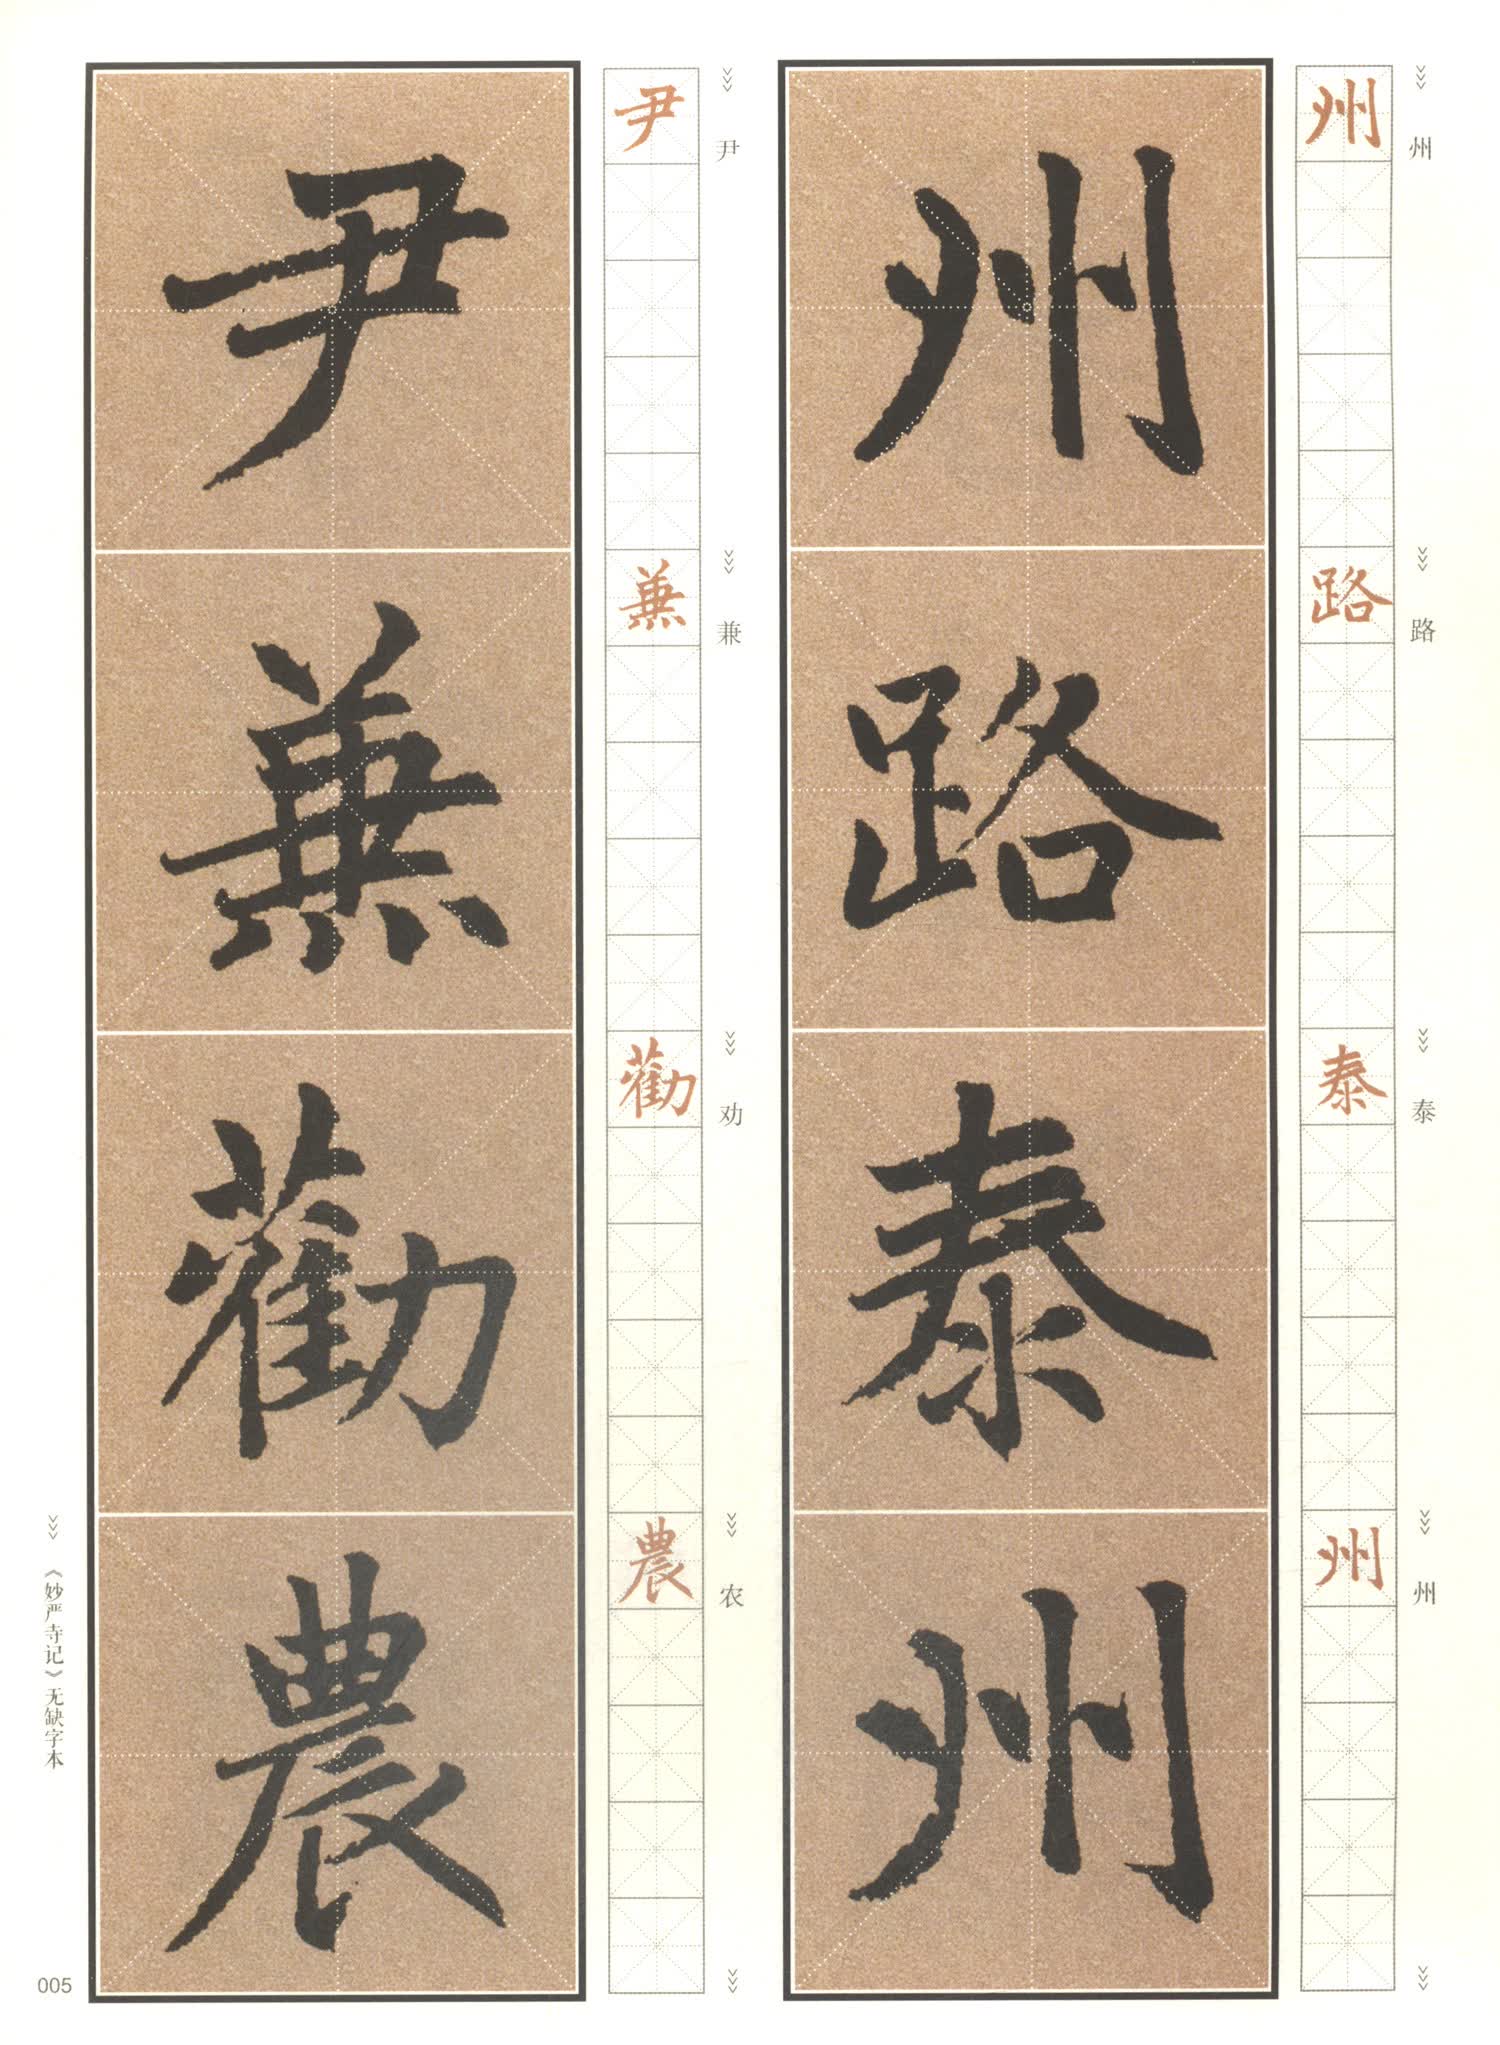 州
州
州
路
路
路
泰
泰
泰
州
州
州
尹
尹
尹
兼
兼
兼
劝
勸
勸
农
農
農
《妙严寺记》无缺字本
005